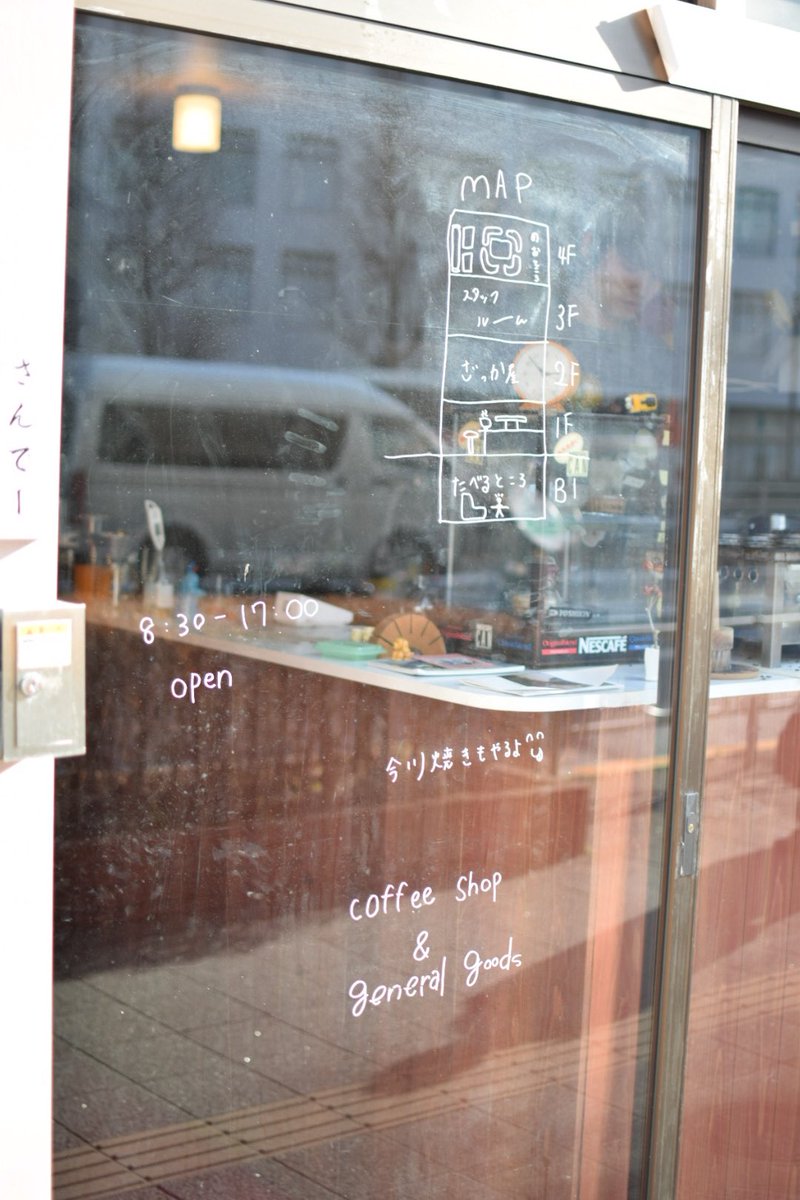 MAP
4F
スタッフ
ルーム
3F
ざっか屋
2F
1F
たべるところ
B1
さんてー
8:30-17:00
open
NESCAFÉ
今川焼きもやるよ
coffee shop
&
general goods